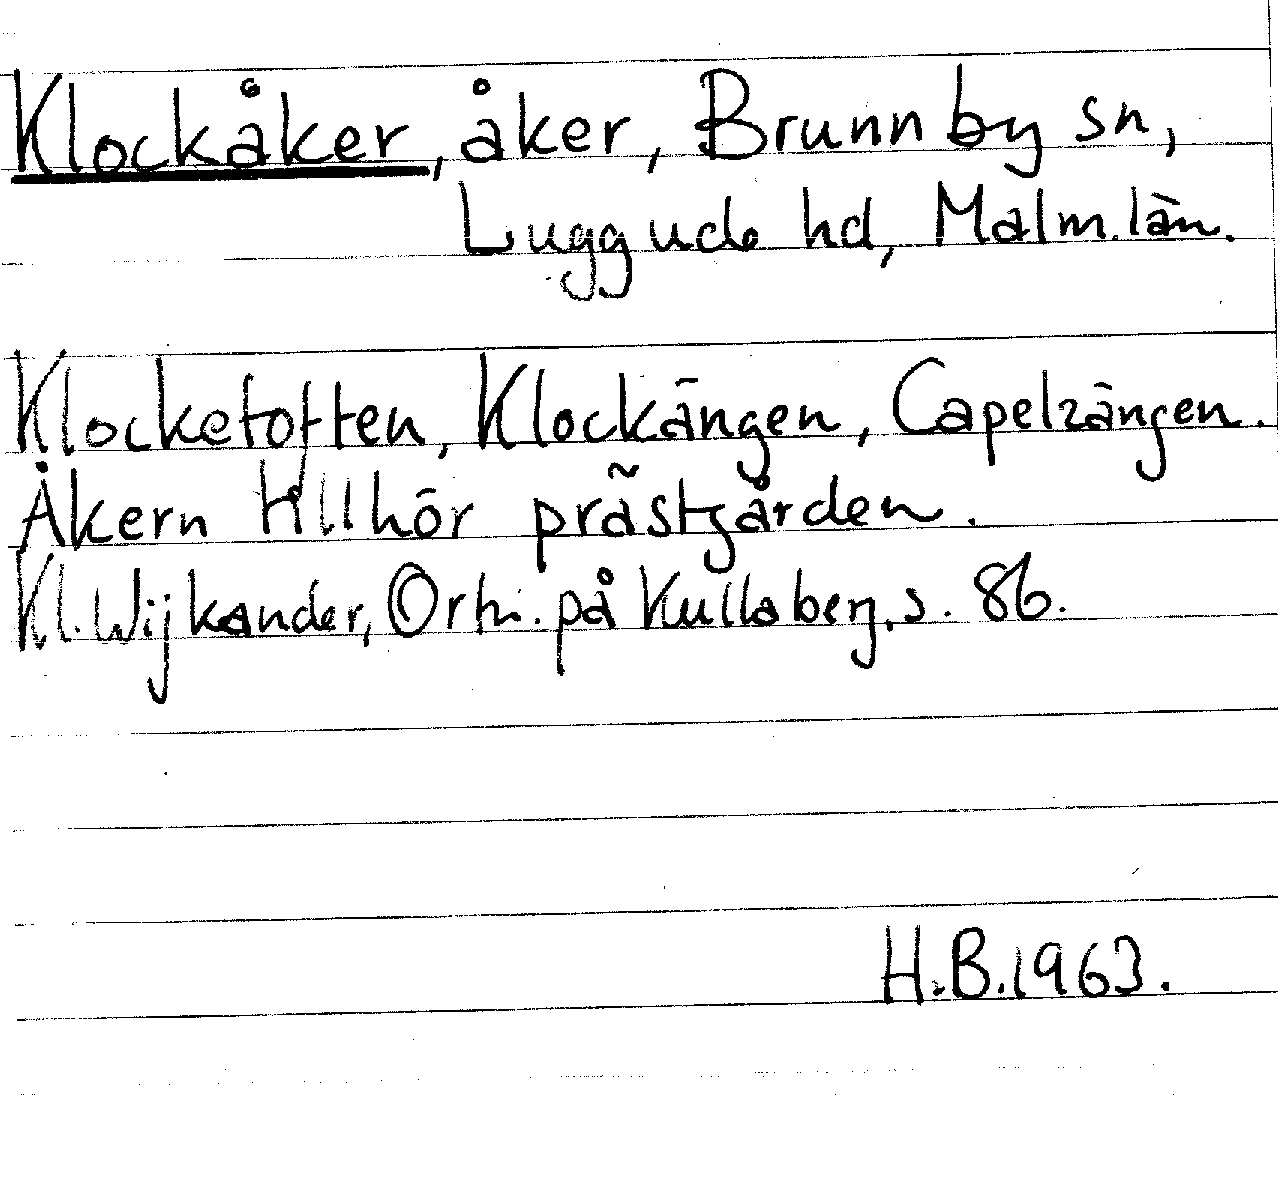 Klockåker, åker, Brunnby sn,
Luggude hd, Malm. län.
Klocketoften, Klockängen, Capelzängen.
Åkern tillhör prästgården.
Kl. Wijkander, Ortn. på Kullaberg, s. 86.
H.B. 1963.